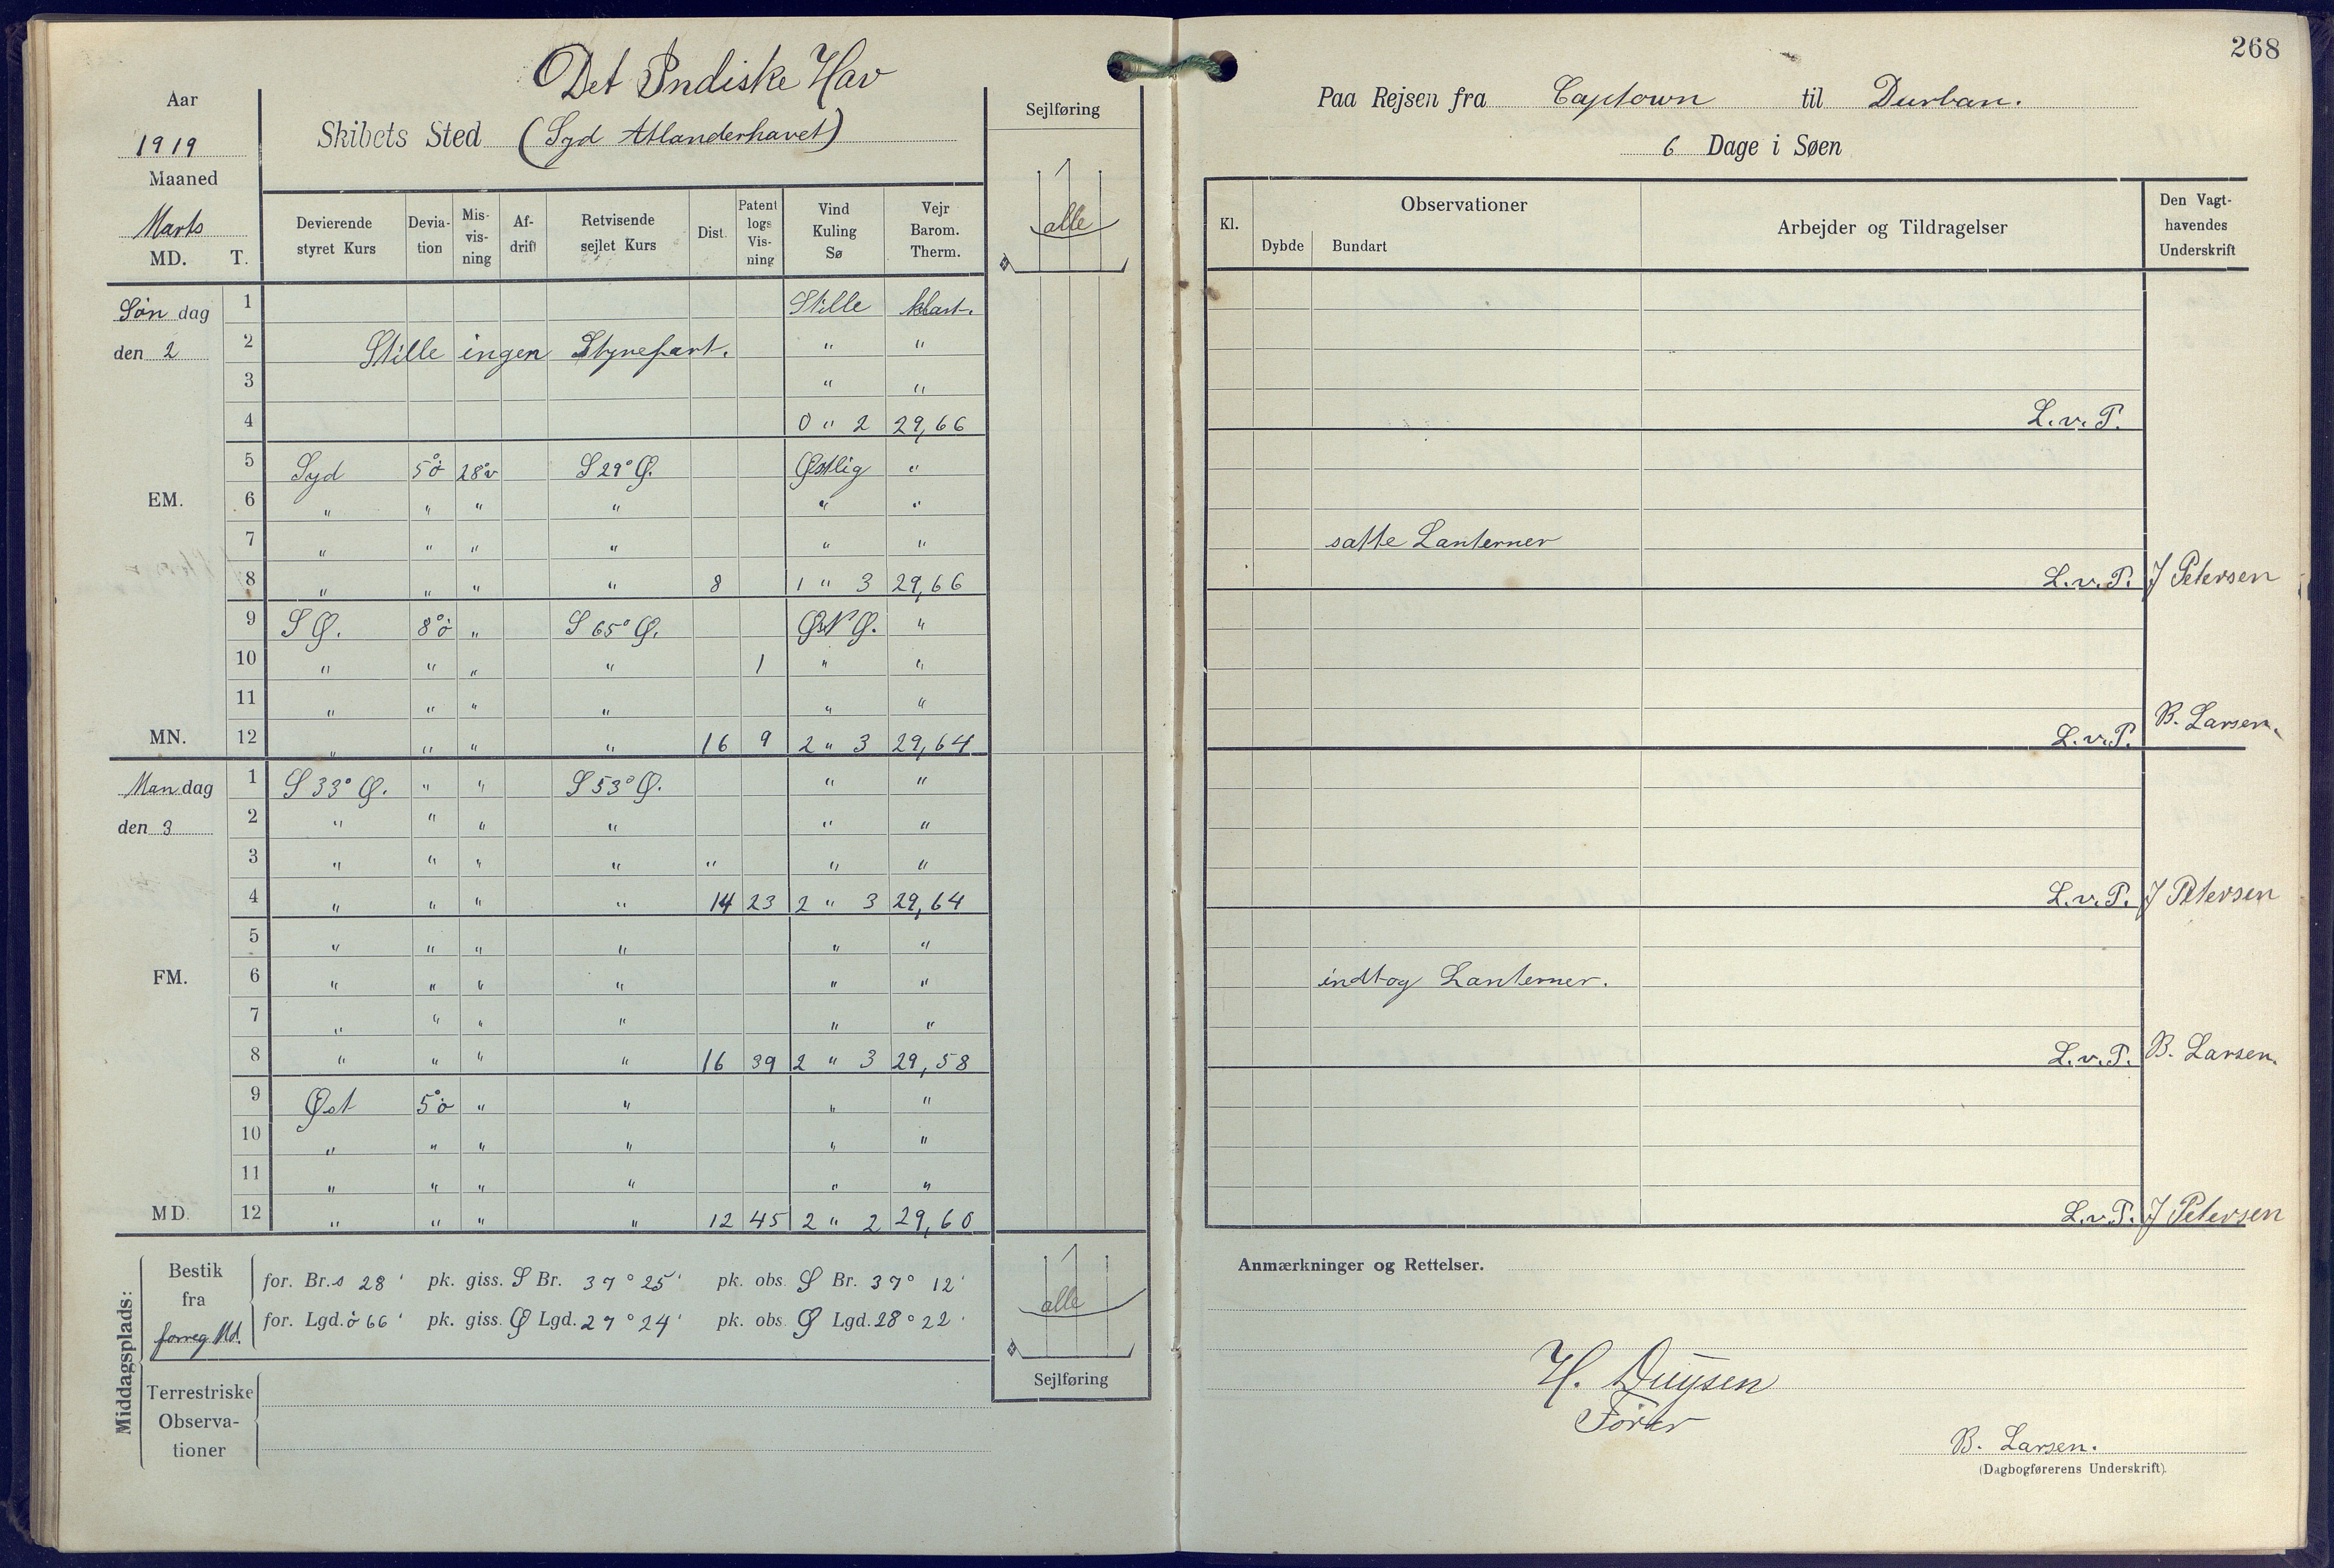 268
Det Indiske Hav
Aar
1919
Maaned
Marts
MD. T.
Skibets Sted (Syd Atlanderhavet)
Sejlføring
alle
Paa Rejsen fra Captown til Durban.
6 Dage i Søen
Devierende styret Kurs | Deviation | Misvisning | Afdrift | Retvisende sejlet Kurs | Dist. | Patent logs Visning | Vind Kuling Sø | Vejr Barom. Therm.
Kl. | Observationer | Dybde | Bundart | Arbejder og Tildragelser | Den Vagthavendes Underskrift
Søndag 1 Stille klart.
den 2 2 Stille ingen Styrefart. " "
3 " "
4 0 " 2 29,66 L.v.P.
5 Syd 5°ö 28°v S 29° Ø. Østlig "
EM. 6 " " " " " "
7 " " " " " " satte Lanterner
8 " " " " 8 1 " 3 29,66 L.v.P. J Petersen
9 S Ø. 8°ö " S 65° Ø. ØNØ. "
10 " " " " 1 " "
11 " " " " " "
MN. 12 " " " " 16 9 2 " 3 29,64 L.v.P. B. Larsen.
Mandag 1 S 33° Ø. " " S 53° Ø. " "
den 3 2 " " " " " "
3 " " " " " " "
4 " " " " 14 23 2 " 3 29,64 L.v.P. J Petersen
5 " " " " " "
FM. 6 " " " " " " indtog Lanterner.
7 " " " " " "
8 " " " " 16 39 2 " 3 29,58 L.v.P. B. Larsen.
9 Øst 5°ö " " " "
10 " " " " " "
11 " " " " " "
MD. 12 " " " " 12 45 2 " 2 29,60 L.v.P. J Petersen
Middagsplads:
Bestik fra forreg Md.
for. Br. s 28 ' pk. giss. S Br. 37 ° 25 ' pk. obs. S Br. 37 ° 12 '
for. Lgd. ö 66 ' pk. giss. Ø Lgd. 27 ° 24 ' pk. obs. Ø Lgd. 28 ° 22 '
alle
Sejlføring
Terrestriske Observationer
Anmærkninger og Rettelser.
Fører
B. Larsen.
(Dagbogførerens Underskrift).